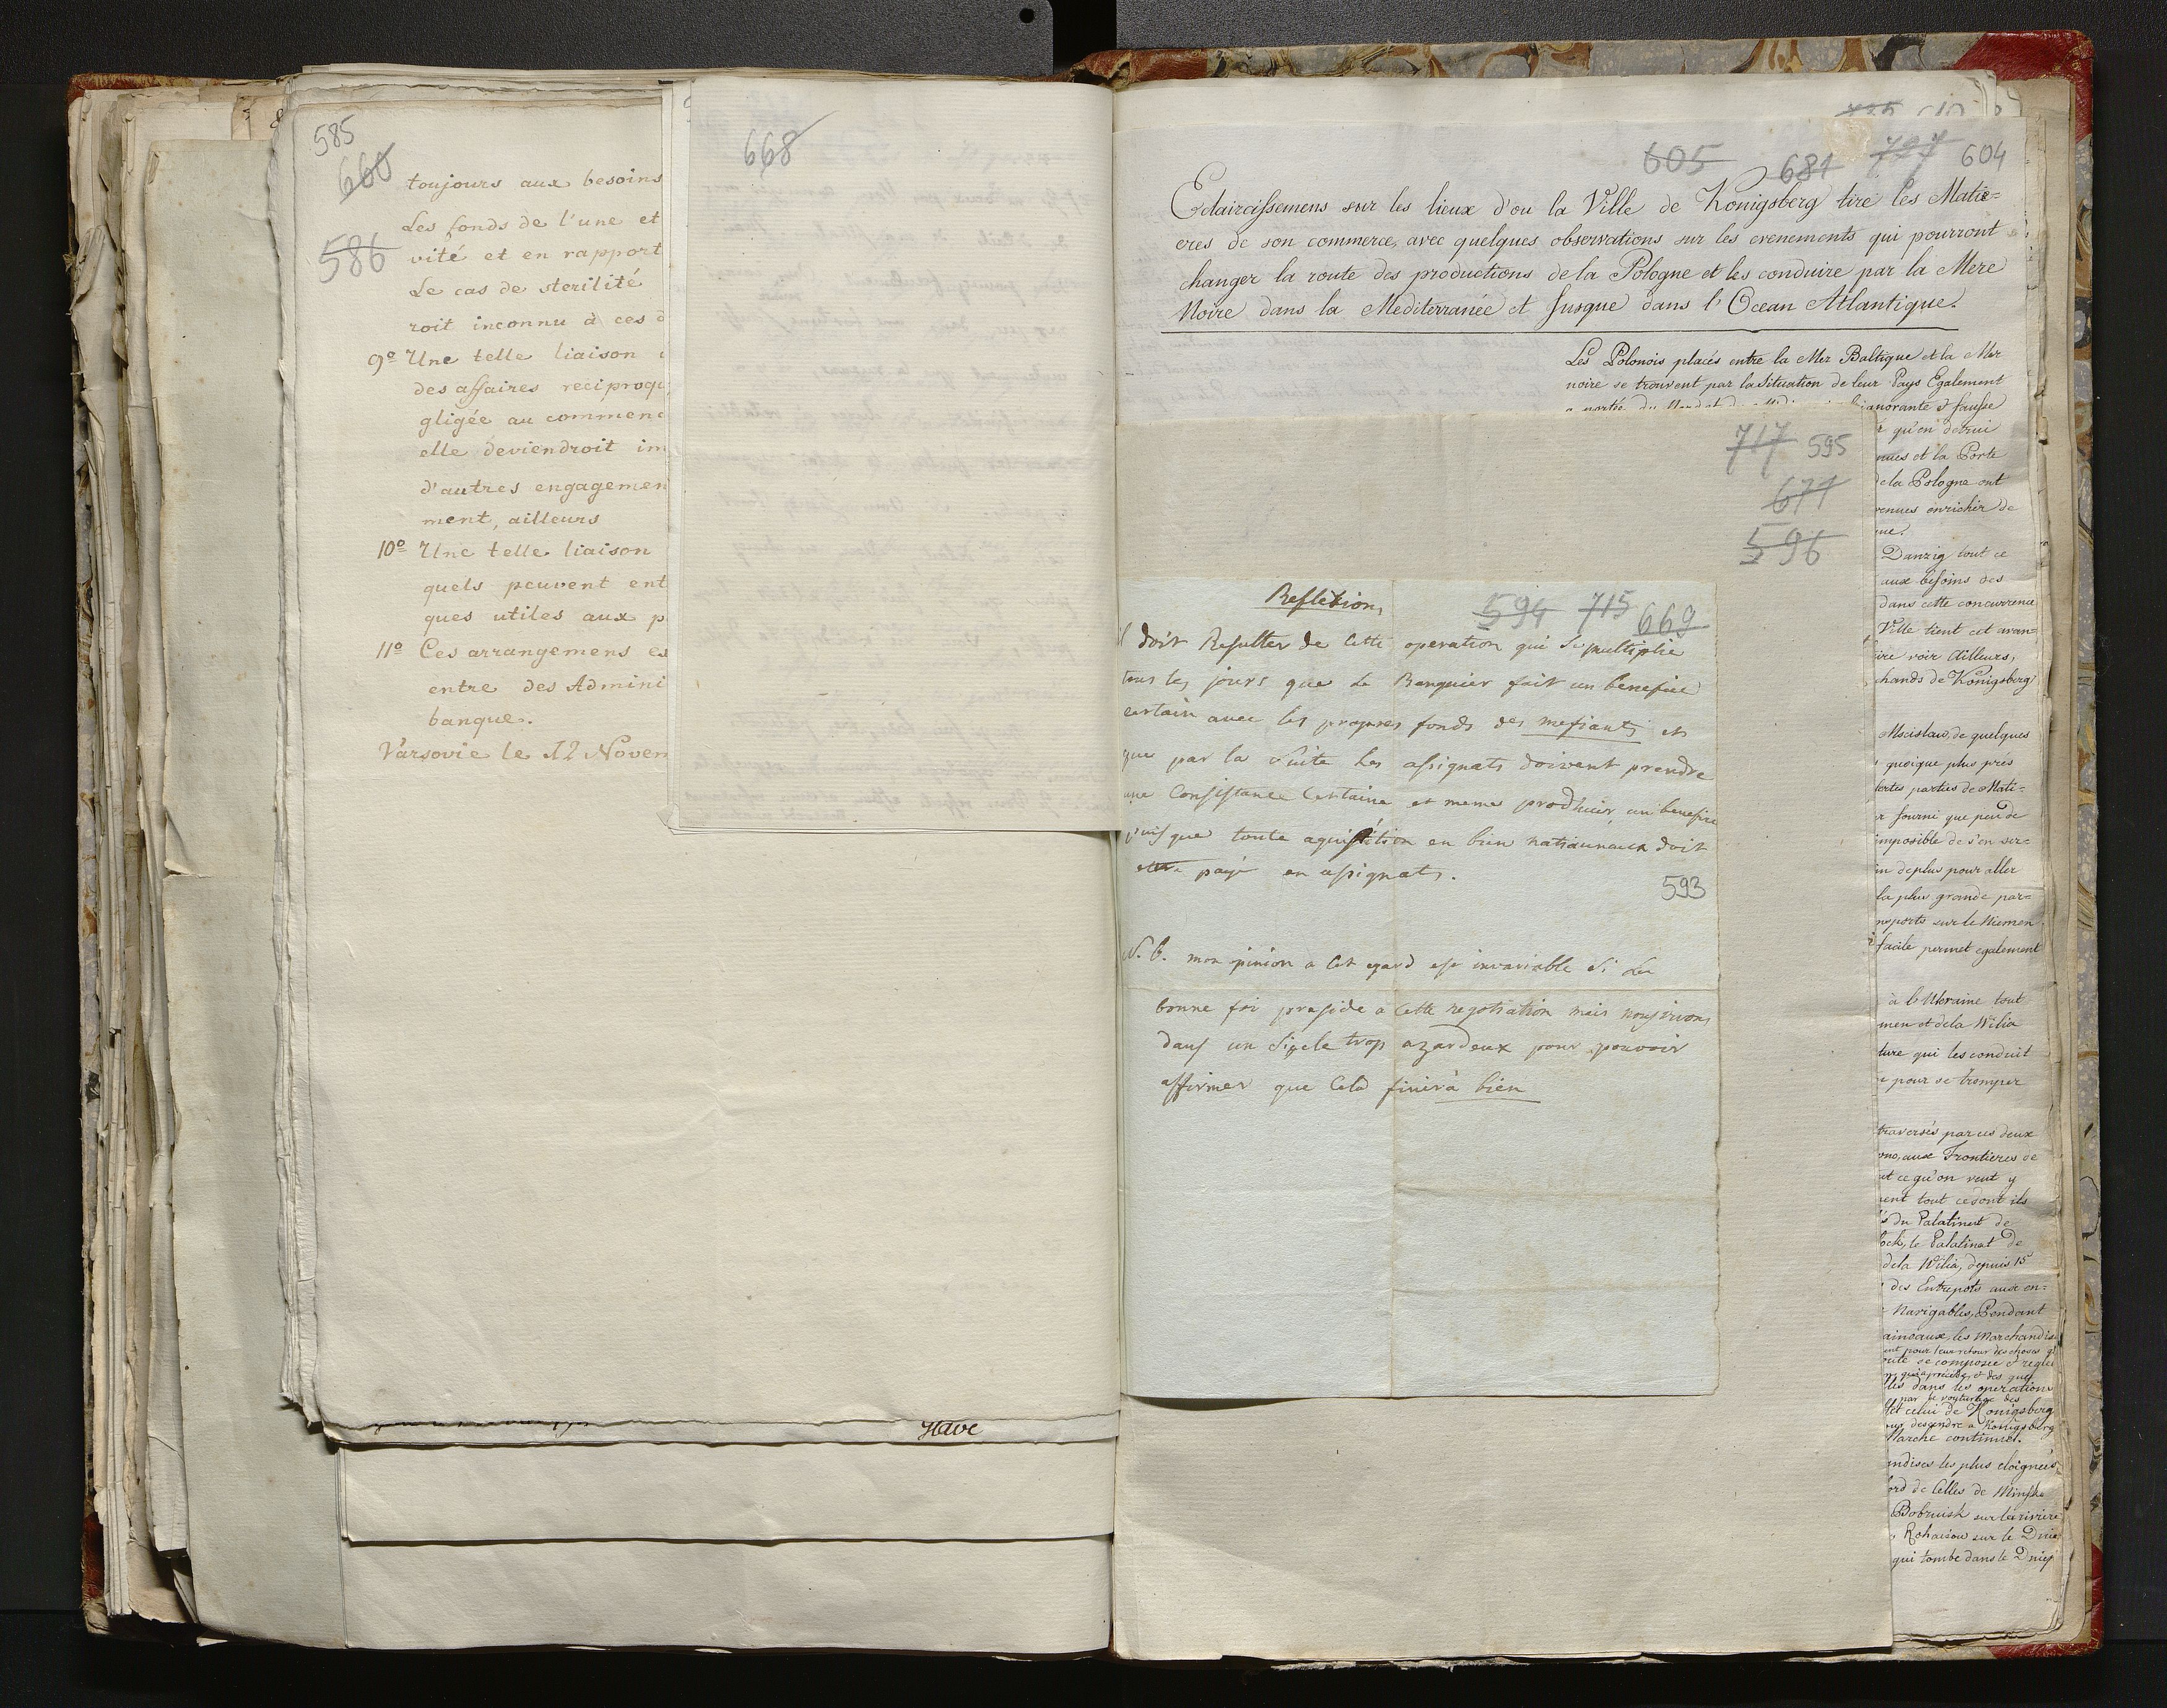 585
660
586
toujours aux besoins
Les fonds de l'une et
vité et en rapport
Le cas de sterilité
roit inconnu à ces
9º Une telle liaison
des affaires recipro
gligée au commenc
elle deviendroit im
d'autres engagemen
ment, ailleurs
10º Une telle liaison
quels peuvent ent
ques utiles aux p
11º Ces arrangemens es
entre des Admini
banque.
Varsovie le 12 Novem
668
Have
605 681 727 604
Eclaircissemens sur les lieux d'ou la Ville de Konigsberg tire les Matie=
eres de son commerce, avec quelques observations sur les evenements qui pourront
changer la route des productions de la Pologne et les conduire par la Mere
Noire dans la Mediterranée et Jusque dans l'Ocean Atlantique.
Les Polonois placés entre la Mer Baltique et la Mer
noire se trouvent par la Situation de leur Pays Egalement
ignorante & fausse
qu'en
nues et la Porte
de la Pologne ont
venues enrichir de
Danzig tout ce
aux besoins des
dans cette concurrence
Ville tient cet avan=
ire voir Ailleurs,
chands de Königsberg
Mscislaw, de quelques
quoique plus près
fortes parties de Mati=
r fourni que peu de
imposible de s'en ser=
in de plus pour aller
la plus grande par=
nsports sur le Niemen
facile permet egalement
à l'Ukraine tout
men et de la Wilia
ture qui les conduit
e pour se tromper
traversés par ces deux
ono, aux Frontieres de
ut ce qu'on veut y
vent tout ce dont ils
s du Palatinat de
ock, le Palatinat de
de la Wilia, depuis 15
des Entrepots aux en=
Navigables, Pendant
aineaux, les Marchandis
ent pour leur retour des choses
oute se composée & reglée
qui précéde, & des que
les dans les operations
par le voiturage des
et celui de Konigsberg
our descendre a Konigsberg
Marche continuel.
andises les plus eloignées
ord de Celles de Minsk
Bobruisk sur la riviere
Rohaisow sur le Dnie
qui tombe dans le Dniep
717 595
677
596
Reflexions
594 715 669
il doit Resulter de cette operation qui se multiplie
tous les jours que le Banquier fait un benefice
certain avec les propres fonds des mefiants et
que par la suite les assignats doivent prendre
une Consistance Certaine et meme produire un benefice
puisque toute aquisition en bien nationnaux doit
etre payé en assignats.
593
N. B. mon opinion a cet egard est invariable si la
bonne foi preside a cette negotiation mais nous vivons
dans un siecle trop azardeux pour pouvoir
affirmer que cela finira bien